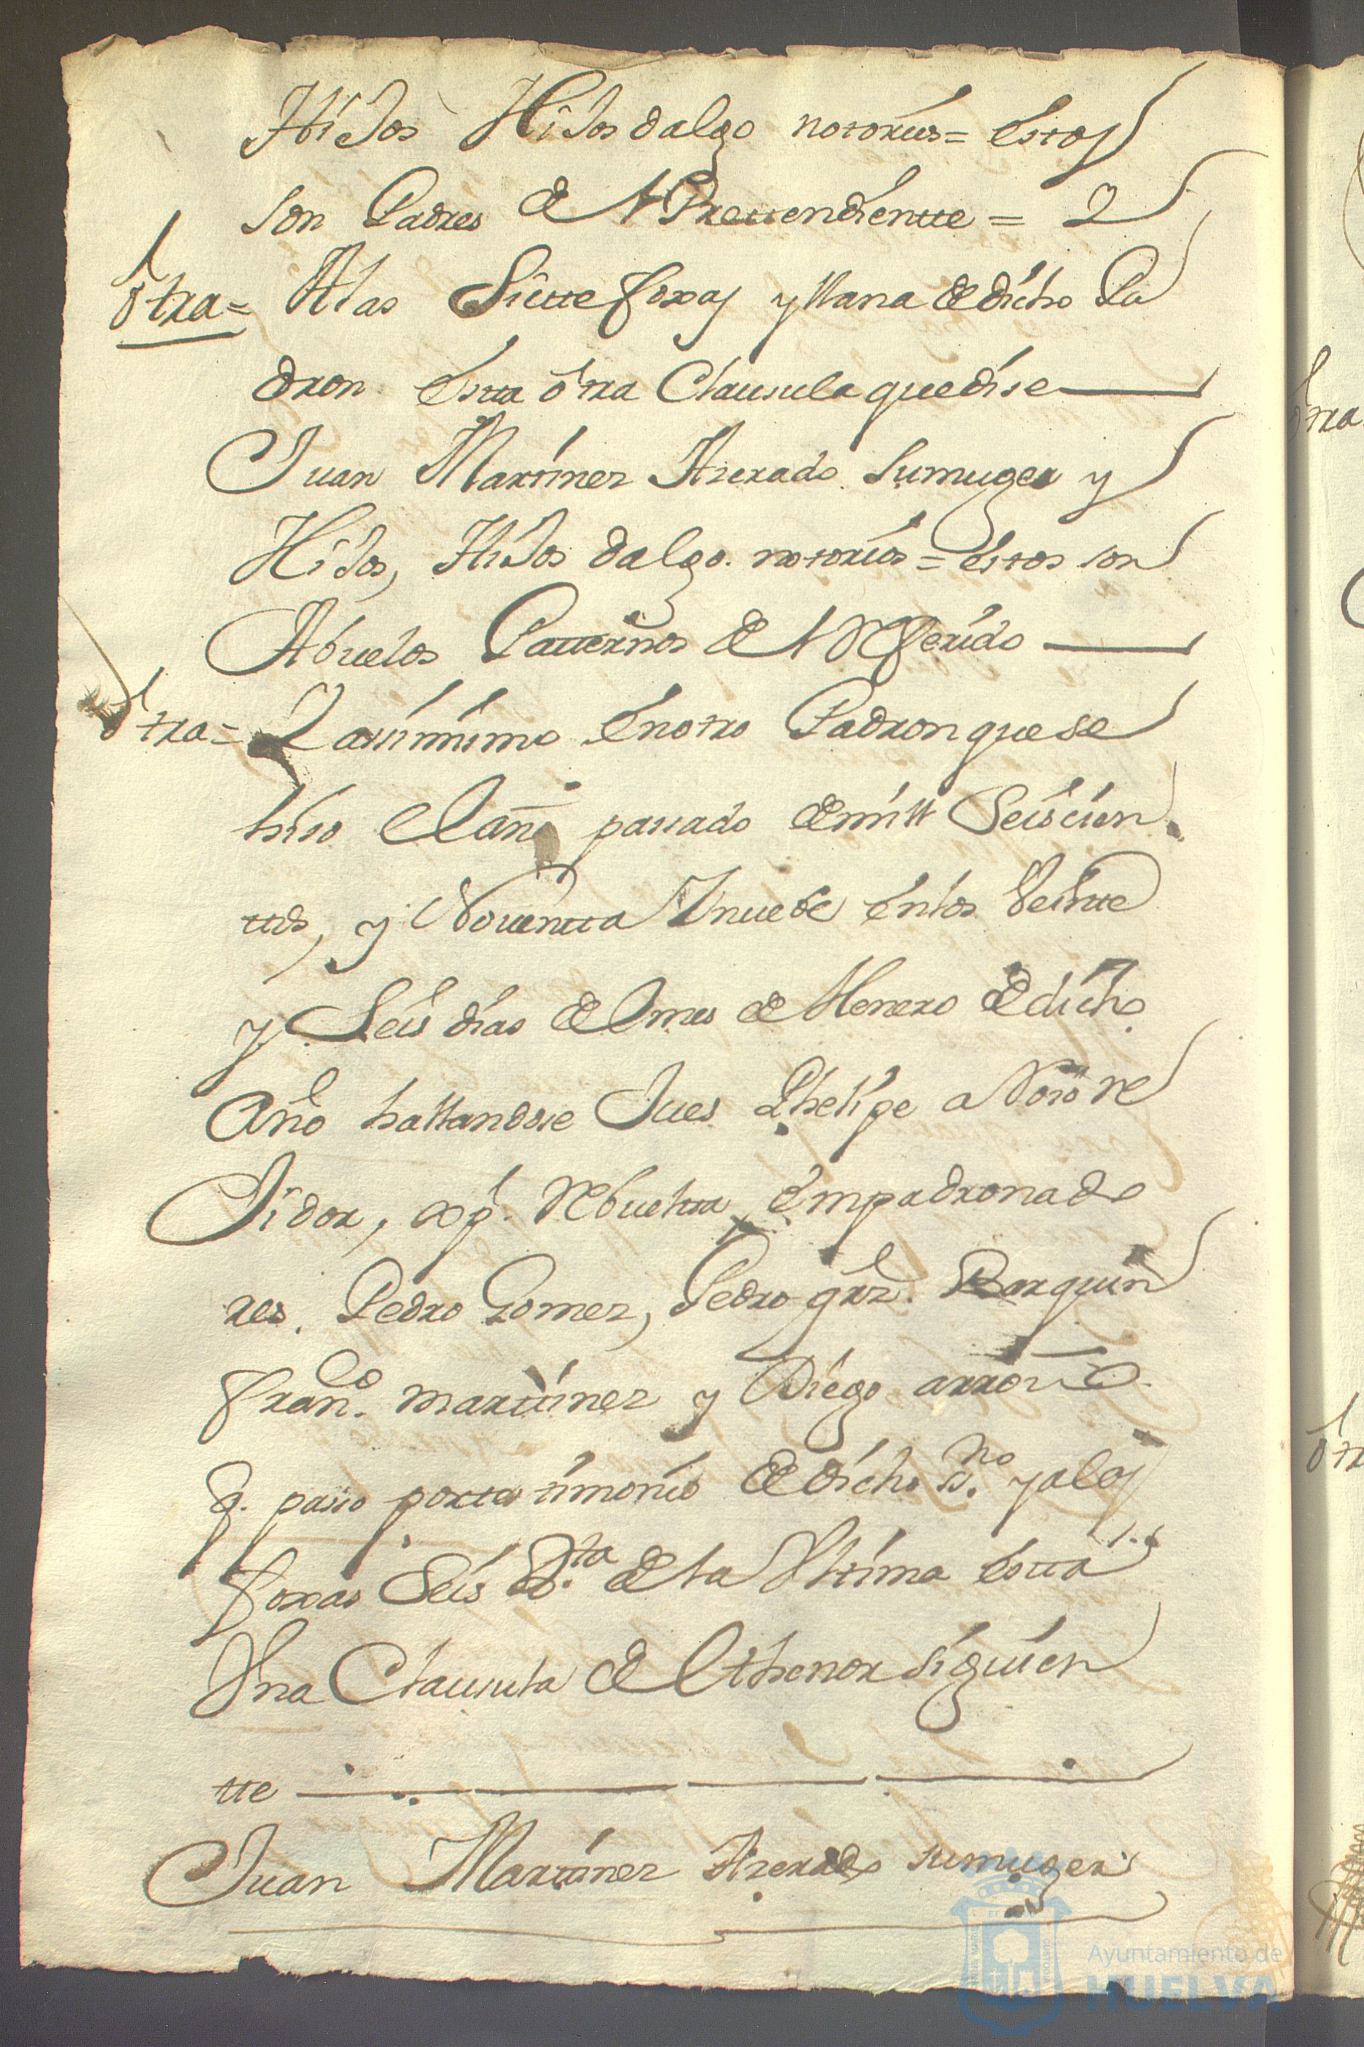 Hijos Hijos dalgo notorios = estos
son Padres de el Prettendientte = Y
otra = A las Siette foxas y llana de dicho Pa
dron esta otra Clausula que dise
Juan Martines Azerado su muger y
Hijos, Hijos dalgo notorios = estos son
Abuelos Patternos de el Referido
otra = Y assimimo en otro Padron que se
hiso el año passado de mill Seiscien
ttos, y Noventta Y nuebe en los Veintte
y Seis dias de el mes de Henero de dicho
Año hallandose Jues Phelipe a Noro re
Jidor, Rebuelta empadronado
res. Pedro Gomez, Pedro grz. Barquin
Franco. marttines y Diego arroio
q. passo por testimonio de dicho ss.no y a las
foxas Seis Bta. de la Vltima esta
Vna Clausula de el thenor siguien
tte
Juan Martines Azerado su muger
Ayuntamiento de
HUELVA